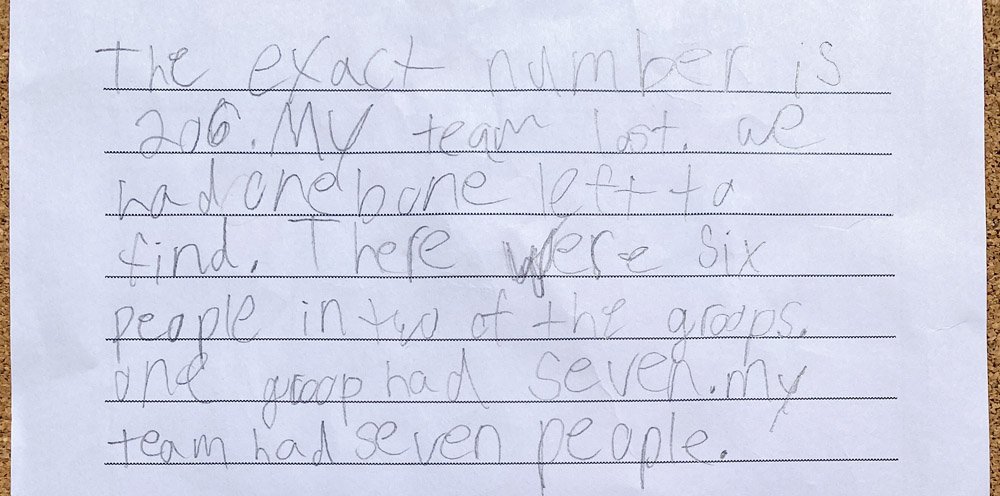 the exact number is
206. My team last. we
had one bone left to
find. There were six
people in two of the groops.
one groop had seven. my
team had seven people.